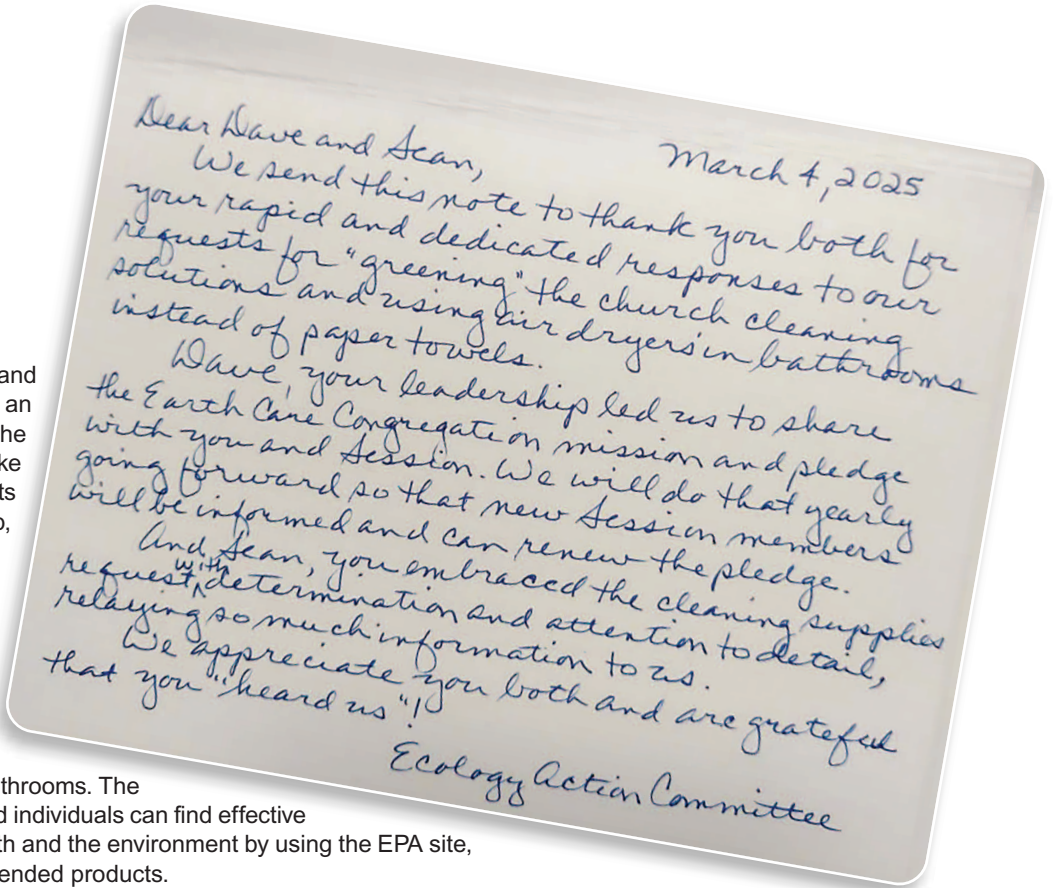 March 4, 2025
Dear Dave and Sean,
We send this note to thank you both for
your rapid and dedicated responses to our
requests for "greening" the church cleaning
solutions and using air dryers in bathrooms
instead of paper towels.
Dave, your leadership led us to share
the Earth Care Congregation mission and pledge
with you and Session. We will do that yearly
going forward so that new Session members
will be informed and can renew the pledge.
And, Sean, you embraced the cleaning supplies
request, with determination and attention to detail,
relaying so much information to us.
We appreciate you both and are grateful
that you "heard us"!
Ecology Action Committee
and
an
he
ke
ts
o,
throoms. The
d individuals can find effective
th and the environment by using the EPA site,
ended products.